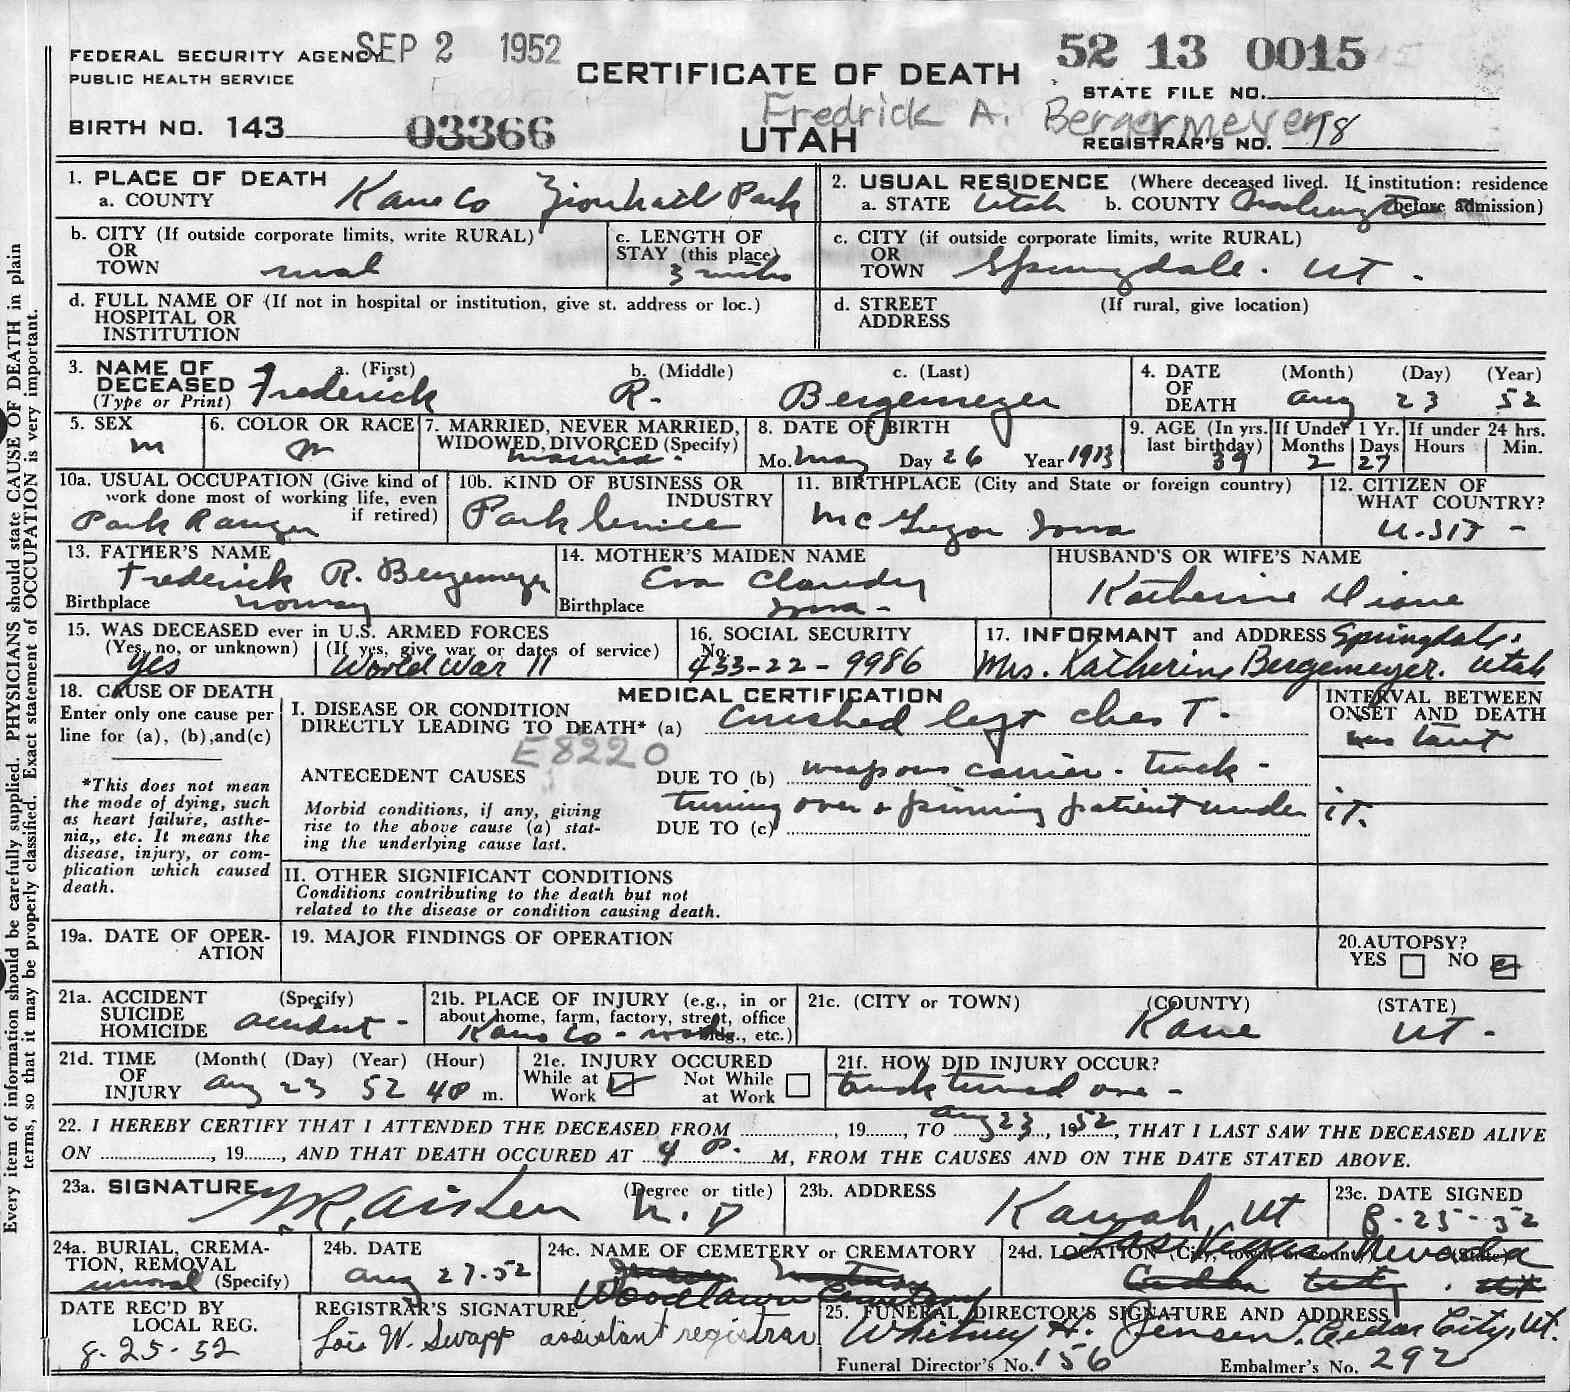 FEDERAL SECURITY AGENCY SEP 2 1952
PUBLIC HEALTH SERVICE
CERTIFICATE OF DEATH
52 13 0015
STATE FILE NO.
Fredrick A. Bergermeyer
BIRTH NO. 143 03366
UTAH
REGISTRAR'S NO. 78
1. PLACE OF DEATH
a. COUNTY Kane Co Zion Natl Park
2. USUAL RESIDENCE (Where deceased lived. If institution: residence before admission)
a. STATE Utah b. COUNTY Washington
b. CITY (If outside corporate limits, write RURAL)
OR
TOWN rural
c. LENGTH OF
STAY (this place)
3
c. CITY (if outside corporate limits, write RURAL)
OR
TOWN Springdale. UT.
d. FULL NAME OF (If not in hospital or institution, give st. address or loc.)
HOSPITAL OR
INSTITUTION
d. STREET (If rural, give location)
ADDRESS
3. NAME OF a. (First) b. (Middle) c. (Last)
DECEASED Frederick R. Bergemeyer
(Type or Print)
4. DATE (Month) (Day) (Year)
OF
DEATH Aug 23 52
5. SEX
m
6. COLOR OR RACE
7. MARRIED, NEVER MARRIED,
WIDOWED, DIVORCED (Specify)
married
8. DATE OF BIRTH
Mo. May Day 26 Year 1913
9. AGE (In yrs. last birthday) 39
If Under 1 Yr. Months 2 Days 27
If under 24 hrs. Hours Min.
10a. USUAL OCCUPATION (Give kind of
work done most of working life, even
if retired)
Park Ranger
10b. KIND OF BUSINESS OR
INDUSTRY
Park Service
11. BIRTHPLACE (City and State or foreign country)
McGregor Iowa
12. CITIZEN OF
WHAT COUNTRY?
13. FATHER'S NAME
Frederick R. Bergemeyer
Birthplace Norway
14. MOTHER'S MAIDEN NAME
Eva
Birthplace Iowa -
HUSBAND'S OR WIFE'S NAME
Katherine Diane
15. WAS DECEASED ever in U.S. ARMED FORCES
(Yes, no, or unknown) (If yes, give war or dates of service)
yes World War II
16. SOCIAL SECURITY
No.
433-22-9986
17. INFORMANT and ADDRESS Springdale.
Mrs. Katherine Bergemeyer. Utah
18. CAUSE OF DEATH
Enter only one cause per
line for (a), (b), and (c)
*This does not mean
the mode of dying, such
as heart failure, asthe-
nia,, etc. It means the
disease, injury, or com-
plication which caused
death.
MEDICAL CERTIFICATION
INTERVAL BETWEEN
ONSET AND DEATH
I. DISEASE OR CONDITION
DIRECTLY LEADING TO DEATH* (a) Crushed left chest.
E8220
ANTECEDENT CAUSES DUE TO (b) weapons carrier - truck -
turning over & pinning patient under it.
Morbid conditions, if any, giving
rise to the above cause (a) stat-
ing the underlying cause last.
DUE TO (c)
II. OTHER SIGNIFICANT CONDITIONS
Conditions contributing to the death but not
related to the disease or condition causing death.
19a. DATE OF OPER-
ATION
19. MAJOR FINDINGS OF OPERATION
20. AUTOPSY?
YES NO
21a. ACCIDENT (Specify)
SUICIDE
HOMICIDE accident -
21b. PLACE OF INJURY (e.g., in or
about home, farm, factory, street, office
bldg., etc.)
Kane Co -
21c. (CITY or TOWN) (COUNTY) (STATE)
Kane UT -
21d. TIME (Month( (Day) (Year) (Hour)
OF
INJURY Aug 23 52 4 P m.
21e. INJURY OCCURED
While at Work Not While at Work
21f. HOW DID INJURY OCCUR?
truck turned over -
22. I HEREBY CERTIFY THAT I ATTENDED THE DECEASED FROM , 19 , TO Aug 23, 1952, THAT I LAST SAW THE DECEASED ALIVE
ON , 19 , AND THAT DEATH OCCURED AT 4 P. M, FROM THE CAUSES AND ON THE DATE STATED ABOVE.
23a. SIGNATURE Aiken (Degree or title) M.D
23b. ADDRESS
Kanab, UT
23c. DATE SIGNED
8-25-52
24a. BURIAL, CREMA-
TION, REMOVAL
removal (Specify)
24b. DATE
Aug 27-52
24c. NAME OF CEMETERY or CREMATORY
Woodlawn Cemetery
24d. LOCATION (City, town, or county) (State)
Las Vegas Nevada
Cedar City. UT
DATE REC'D BY
LOCAL REG.
8-25-52
REGISTRAR'S SIGNATURE
Lois W. Swapp assistant registrar
25. FUNERAL DIRECTOR'S SIGNATURE AND ADDRESS
Whitney H. Jensen. Cedar City, Ut.
Funeral Director's No. 156 Embalmer's No. 292
Every item of information should be carefully supplied. PHYSICIANS should state CAUSE OF DEATH in plain
terms, so that it may be properly classified. Exact statement of OCCUPATION is very important.